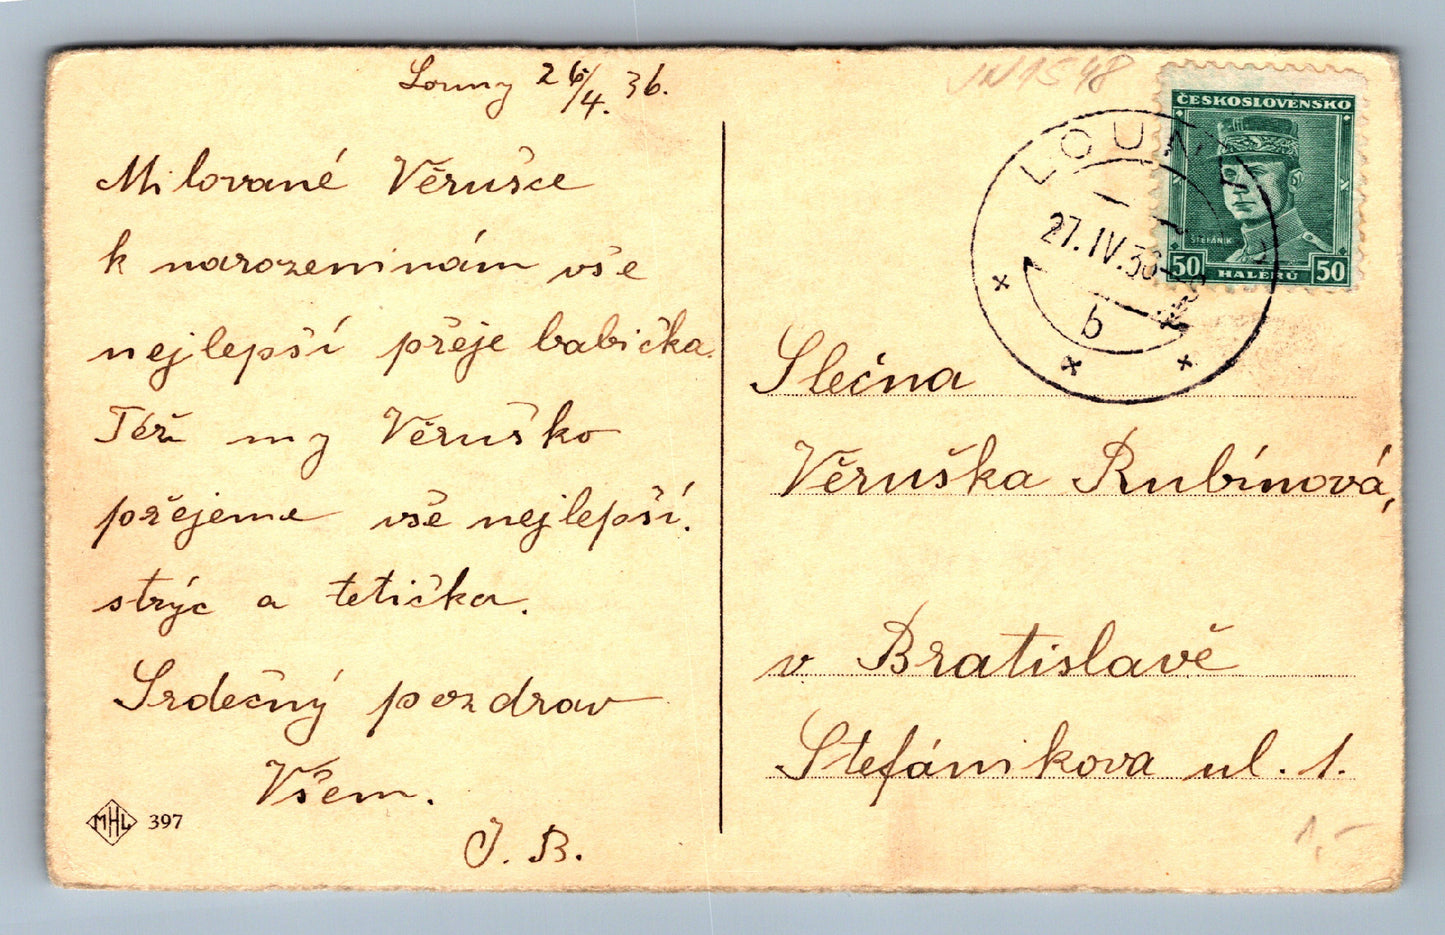 Louny 26/4. 36.
Milované Věrušce
k narozeninám vše
nejlepší přeje babička.
Též my Věruško
přejeme vše nejlepší.
strýc a tetička.
Srdečný pozdrav
Všem.
J. B.
MHL 397
ČESKOSLOVENSKO
ŠTEFÁNIK
50 HALÉŘŮ 50
LOUNY
27.IV.36
b
Slečna
Věruška Rubínová,
v Bratislavě
Štefánikova ul. 1.
1,-